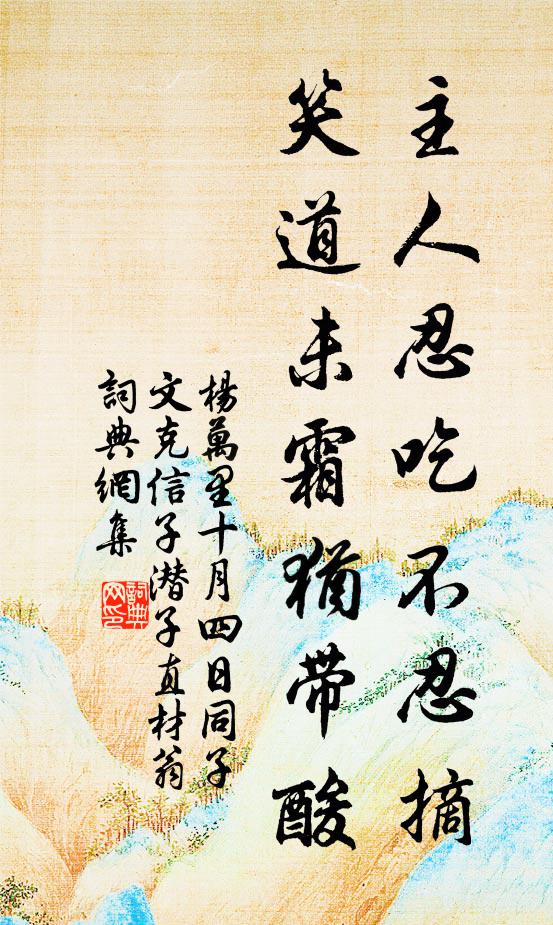 主人忍吃不忍摘
笑道未霜猶帶酸
楊萬里十月四日同子
文克信子潜子直材翁
詞典網集
詞典
网印